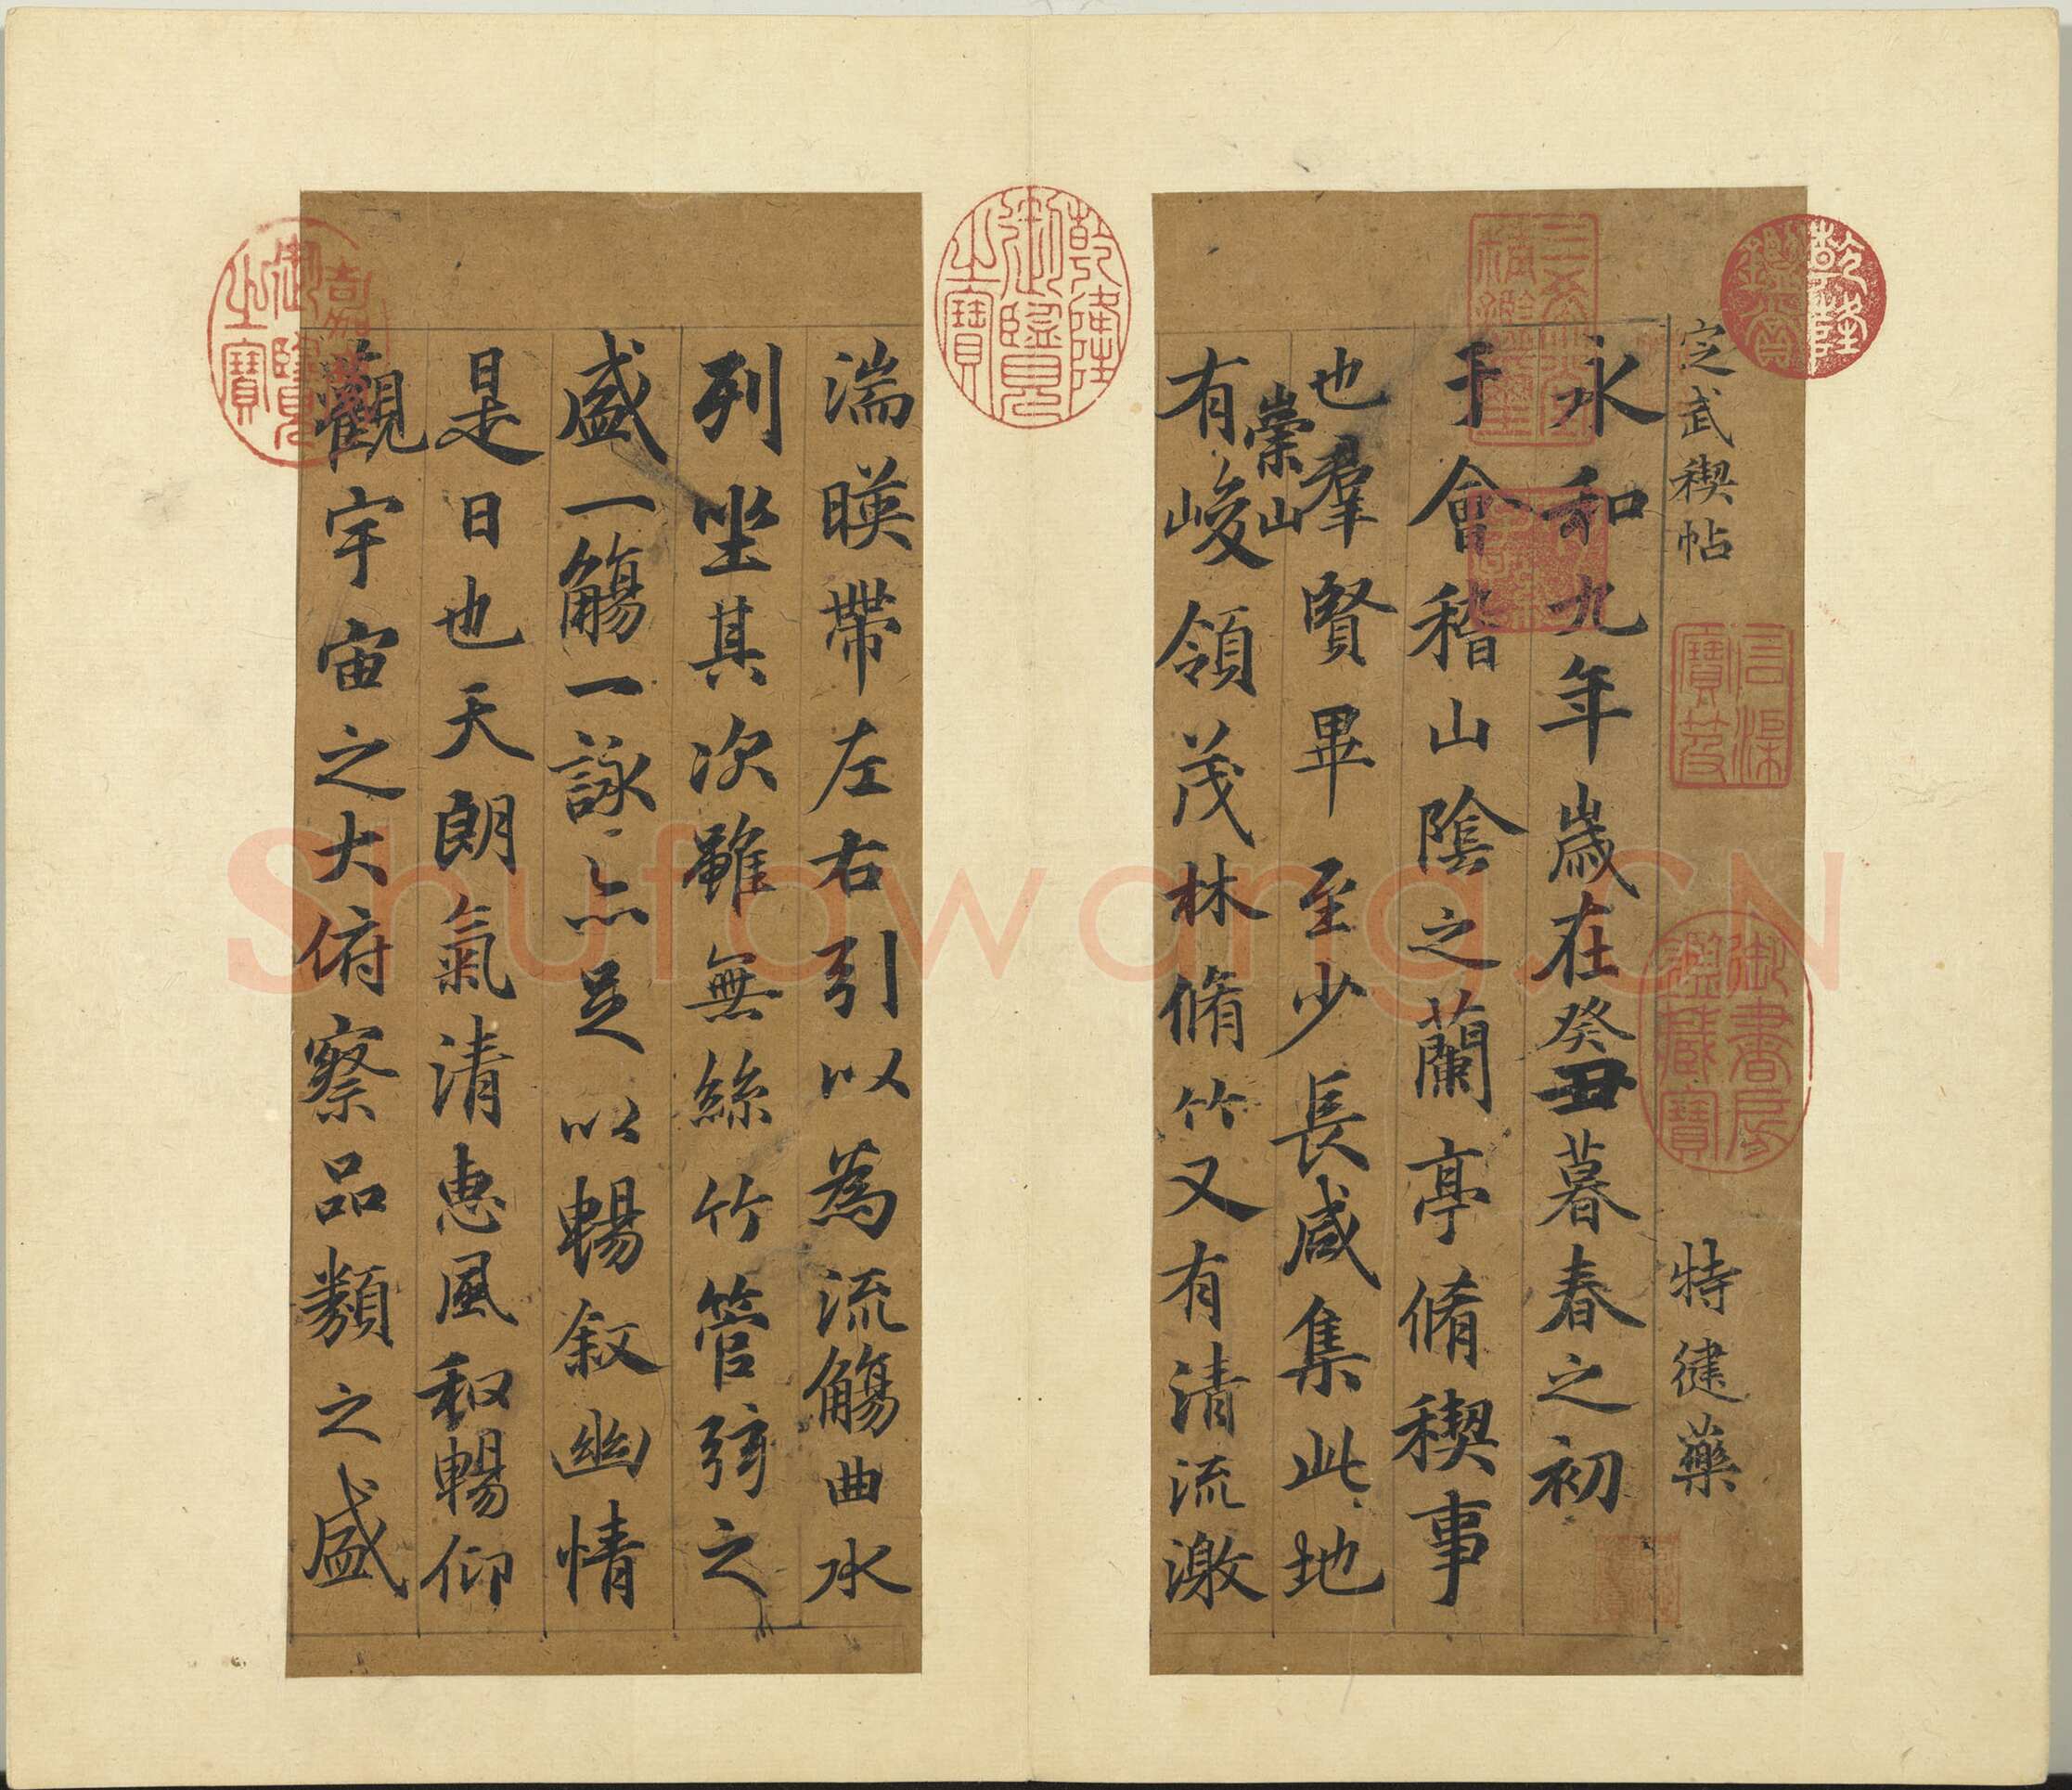 定武禊帖 特健藥
永和九年歲在癸丑暮春之初
于會稽山陰之蘭亭脩禊事
也羣賢畢至少長咸集此地
崇山
有峻領茂林脩竹又有清流激
湍暎帶左右引以為流觴曲水
列坐其次雖無絲竹管弦之
盛一觴一詠亦足以暢叙幽情
是日也天朗氣清惠風和暢仰
觀宇宙之大俯察品類之盛
乾隆鑑賞
三希堂精鑑璽
石渠寶笈
御書房鑑藏寶
乾隆御覽之寶
嘉慶御覽之寶
Shufawang.CN